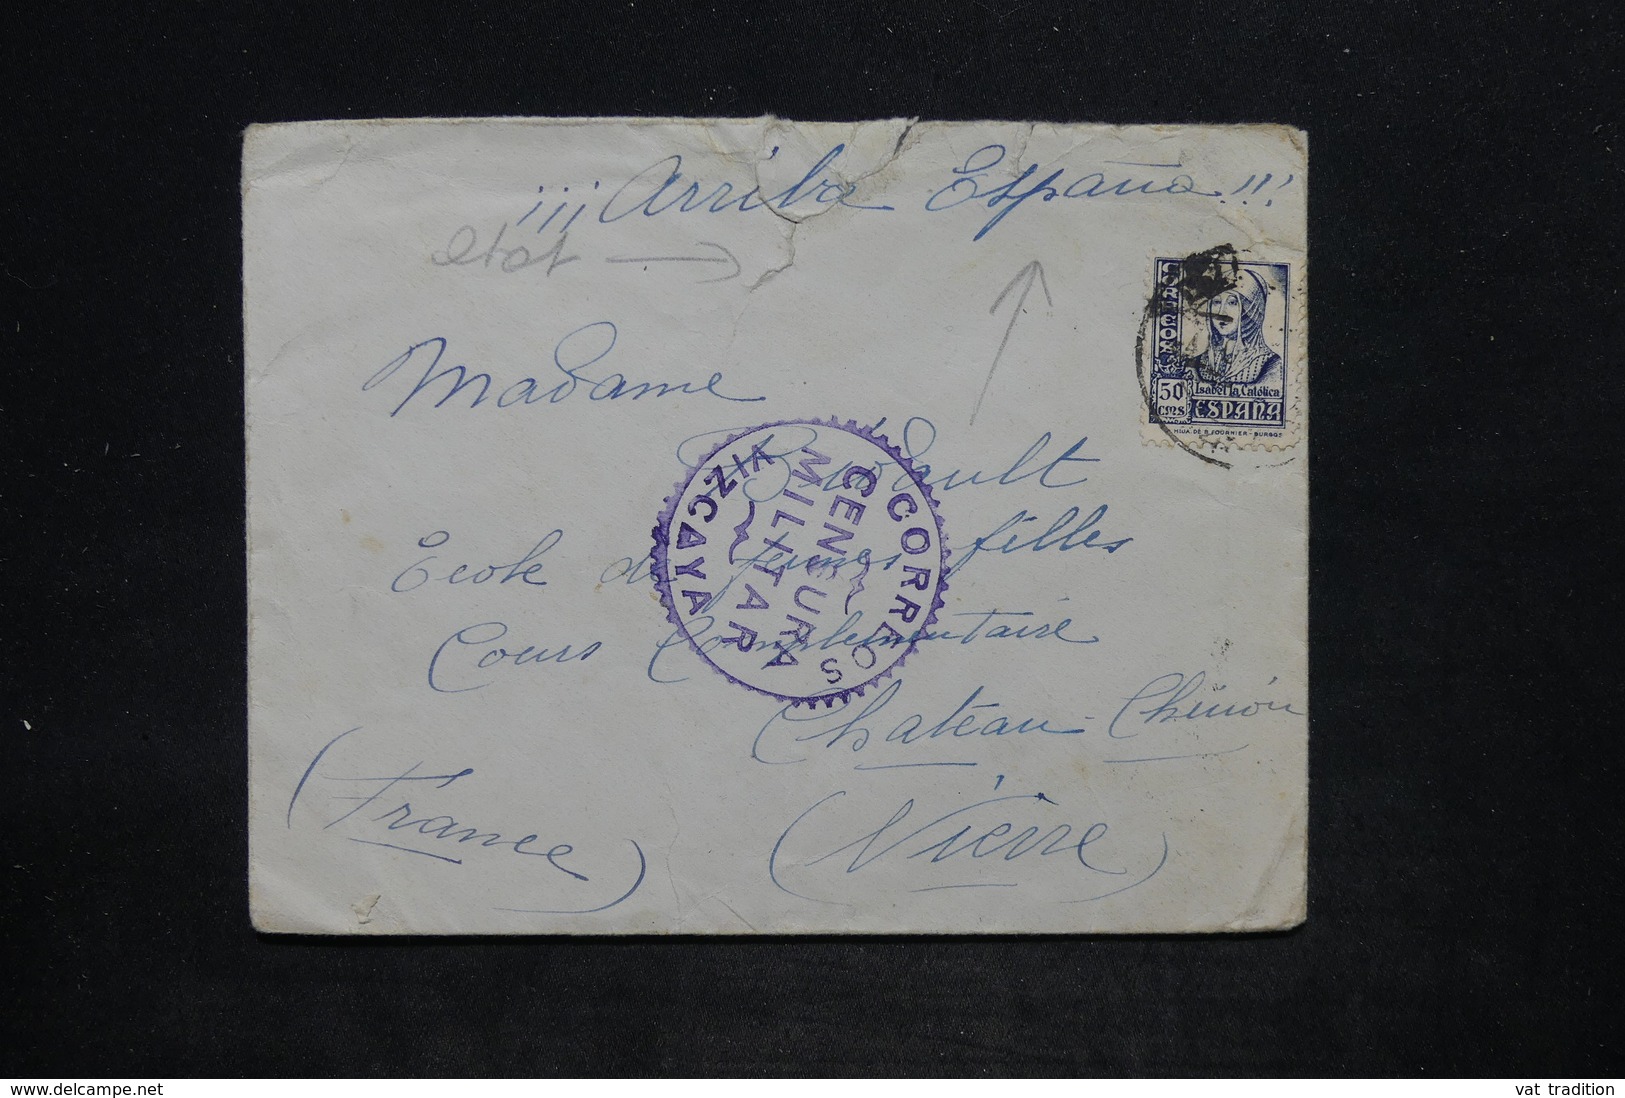 ¡¡¡Arriba España!!!
etat
CORREOS
Isabel la Católica
50 CMS ESPAÑA
HIJA DE B. FOURNIER - BURGOS
Madame
CORREOS
CENSURA
MILITAR
VIZCAYA
Ecole de jeunes filles
Cours Complémentaire
Château-Chinon
(France)
(Nièvre)
www.delcampe.net
vat tradition